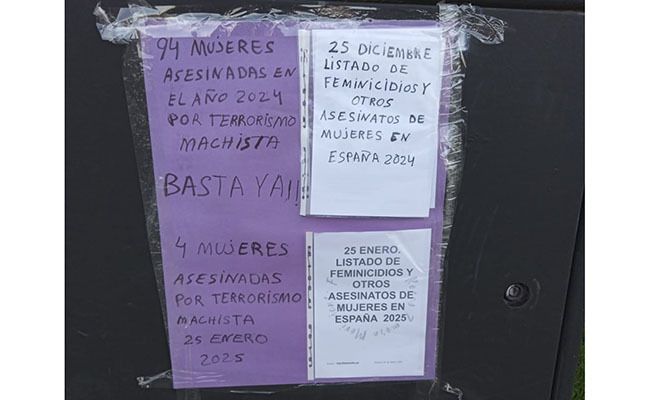 94 MUJERES
ASESINADAS EN
EL AÑO 2024
POR TERRORISMO
MACHISTA
BASTA YA!!
25 DICIEMBRE
LISTADO DE
FEMINICIDIOS Y
OTROS
ASESINATOS DE
MUJERES EN
ESPAÑA 2024
4 MUJERES
ASESINADAS
POR TERRORISMO
MACHISTA
25 ENERO
2025
25 ENERO.
LISTADO DE
FEMINICIDIOS Y
OTROS
ASESINATOS DE
MUJERES EN
ESPAÑA 2025